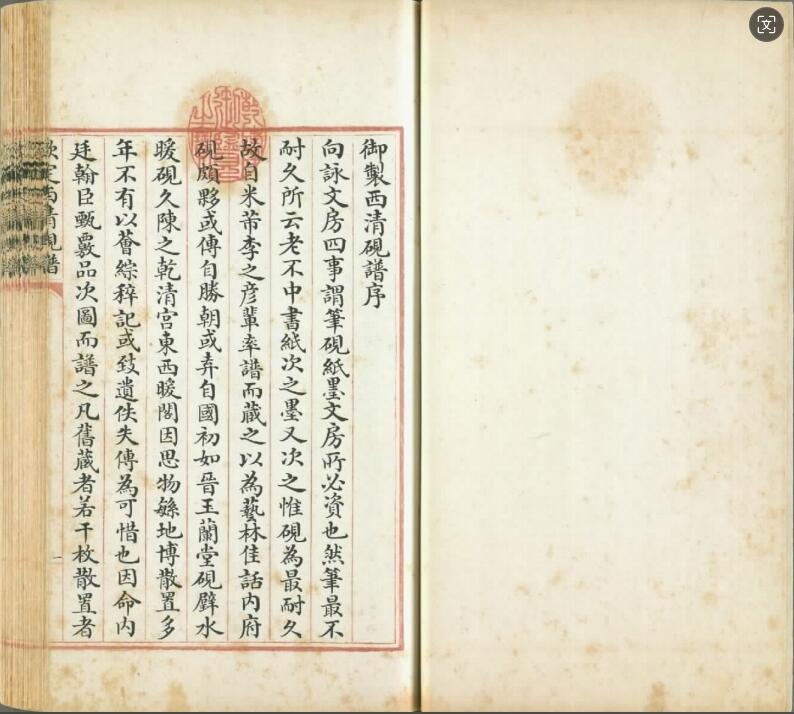 御製西清硯譜序
向詠文房四事謂筆硯紙墨文房所必資也然筆最不
耐久所云老不中書紙次之墨又次之惟硯為最耐久
故自米芾李之彦輩率譜而蔵之以為藝林佳話内府
硯頗夥或傳自勝朝或弆自國初如晉玉蘭堂硯璧水
暖硯久陳之乾清宫東西暖閣因思物緐地博散置多
年不有以薈綜稡記或致遺佚失傳為可惜也因命内
廷翰臣甄覈品次圖而譜之凡舊蔵者若干枚散置者
欽定西清硯譜
一